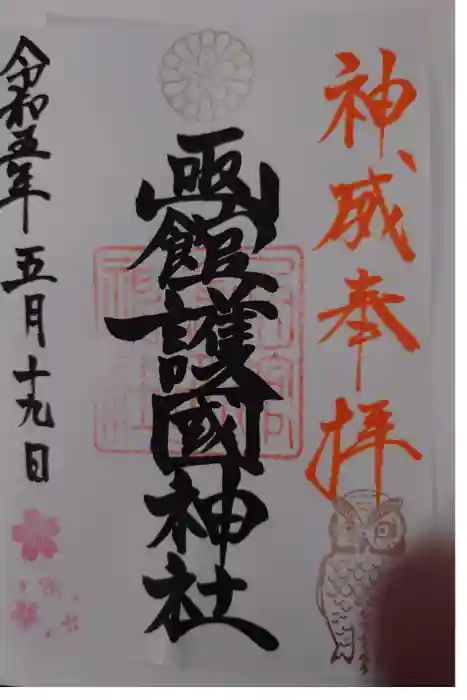 神威奉拝
函館護國神社
令和五年五月十九日